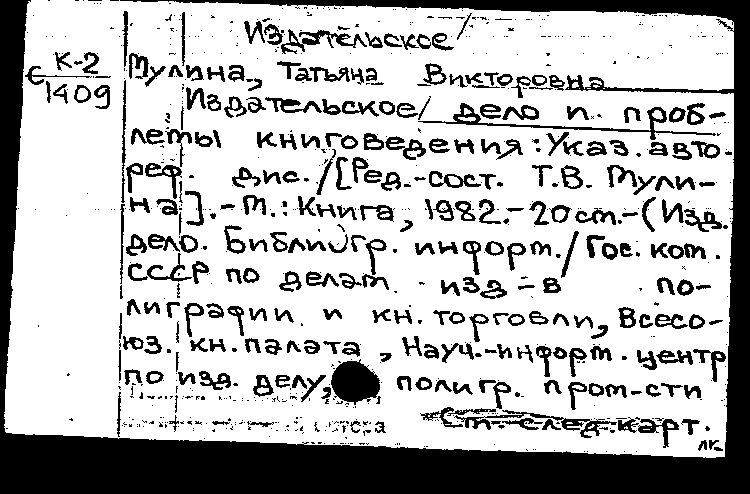 Издательское/
К-2
Є 1409
Мулина, Татьяна Викторовна
Издательское/ дело и проб-
лемы книговедения: Указ. авто-
реф. дис. / [Ред.-сост. Т.В. Мули-
на]. - М.: Книга, 1982. - 20 см. - (Изд.
дело. Библиогр. информ. / Гос. ком.
СССР по делам изд-в по-
лиграфии и кн. торговли, Всесо-
юз. кн. палата, Науч.-информ. центр
по изд. делу, полигр. пром-сти
См. след. карт.